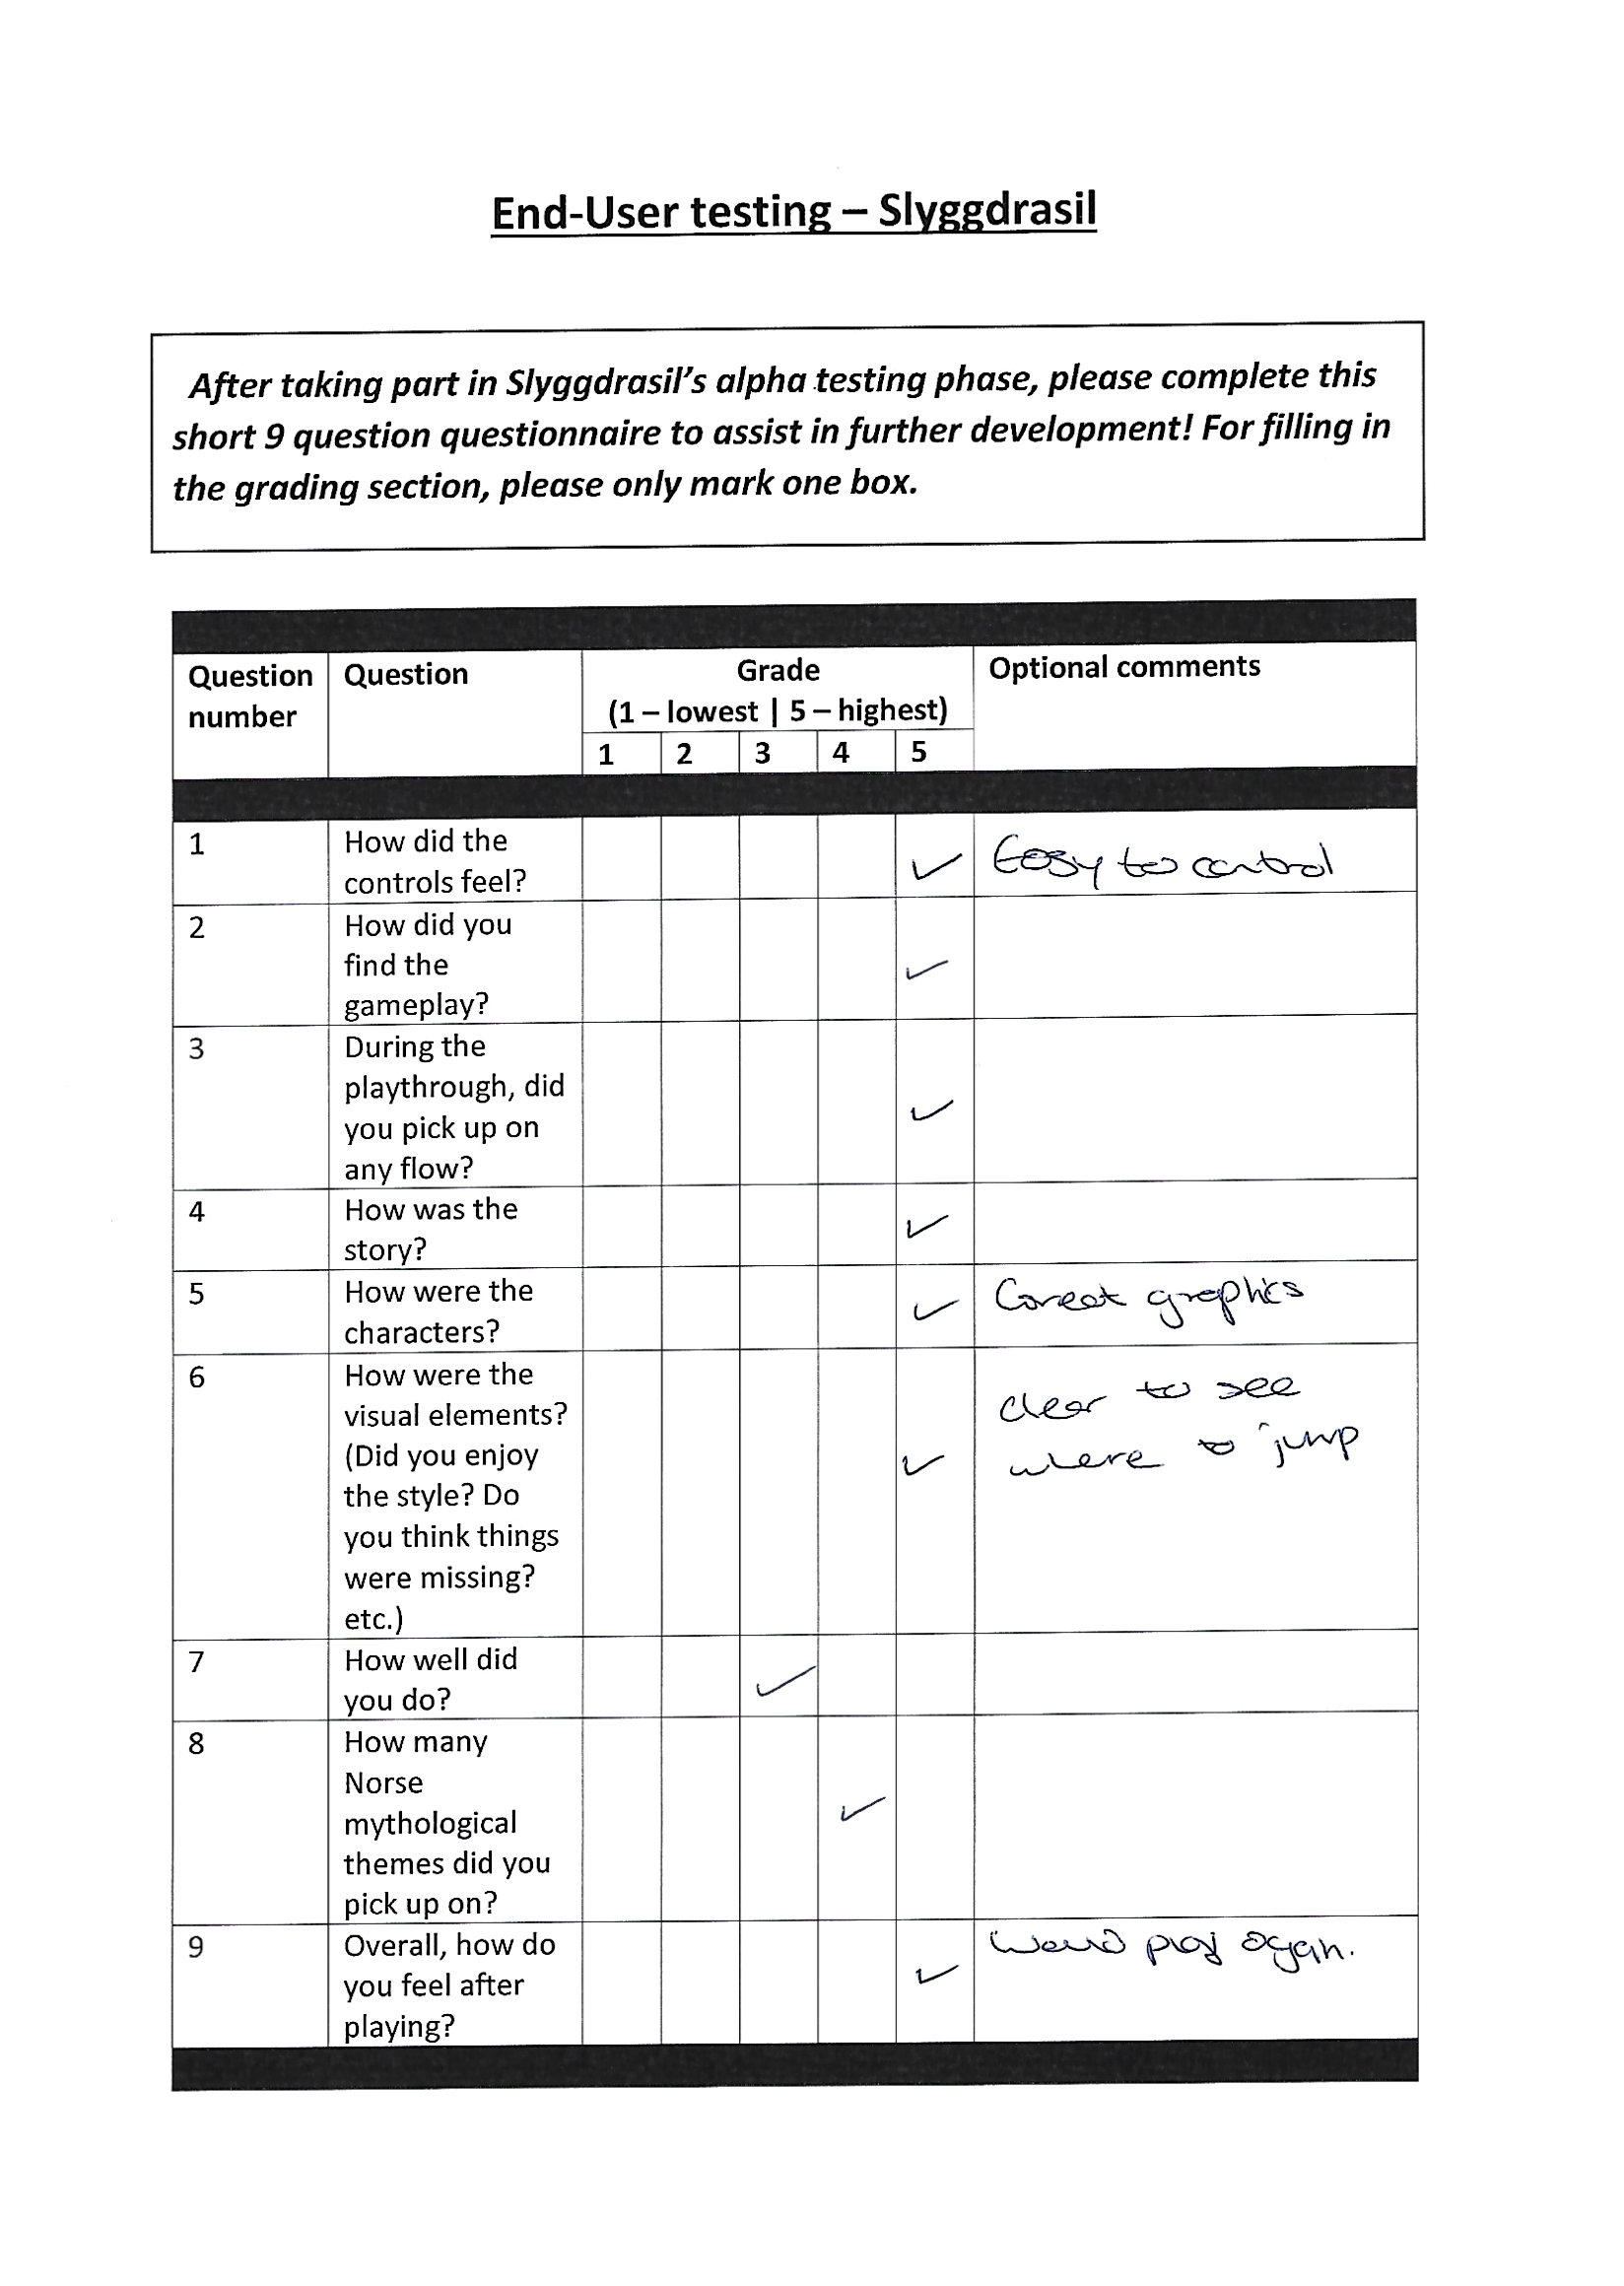 End-User testing – Slyggdrasil
After taking part in Slyggdrasil's alpha testing phase, please complete this
short 9 question questionnaire to assist in further development! For filling in
the grading section, please only mark one box.
Question number
Question
Grade
(1 – lowest | 5 – highest)
Optional comments
1 2 3 4 5
1
How did the
controls feel?
✓
Easy to control
2
How did you
find the
gameplay?
✓
3
During the
playthrough, did
you pick up on
any flow?
✓
4
How was the
story?
✓
5
How were the
characters?
✓
Great graphics
6
How were the
visual elements?
(Did you enjoy
the style? Do
you think things
were missing?
etc.)
✓
clear to see
where to jump
7
How well did
you do?
✓
8
How many
Norse
mythological
themes did you
pick up on?
✓
9
Overall, how do
you feel after
playing?
✓
Would play again.